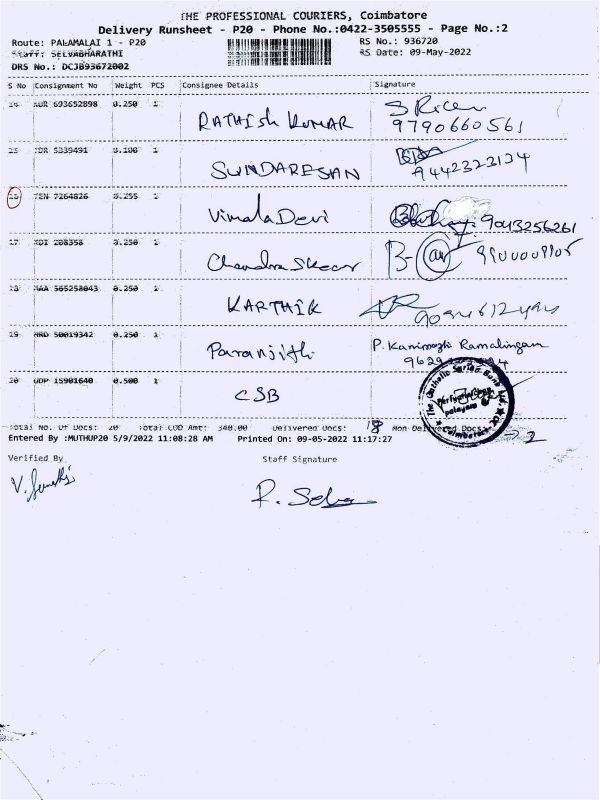 THE PROFESSIONAL COURIERS, Coimbatore
Delivery Runsheet - P20 - Phone No.:0422-3505555 - Page No.:2
Route: PALAMALAI 1 - P20 RS No.: 936720
Staff: SELVABHARATHI RS Date: 09-May-2022
DRS No.: DCJB93672002
S No Consignment No Weight PCS Consignee Details Signature
14 693652898 0.250 1 RATHISH KUMAR
9790660561
15 5339491 0.100 1 SUNDARESAN
9442323134
16 TEN 7264826 0.255 1 Vimala Devi 9043256261
17 208358 0.250 1
18 MAA 565258043 0.250 1 KARTHIK
19 50019342 0.250 1 Paranjith P. Kanimozhi Ramalingam
20 UDP 15901640 0.500 1 CSB The Catholic Syrian Bank Coimbatore
Total No. Of Docs: 20 Total COD Amt: 340.00 Delivered Docs: 18 Non Delivered Docs: 2
Entered By :MUTHUP20 5/9/2022 11:08:28 AM Printed On: 09-05-2022 11:17:27
Verified By Staff Signature